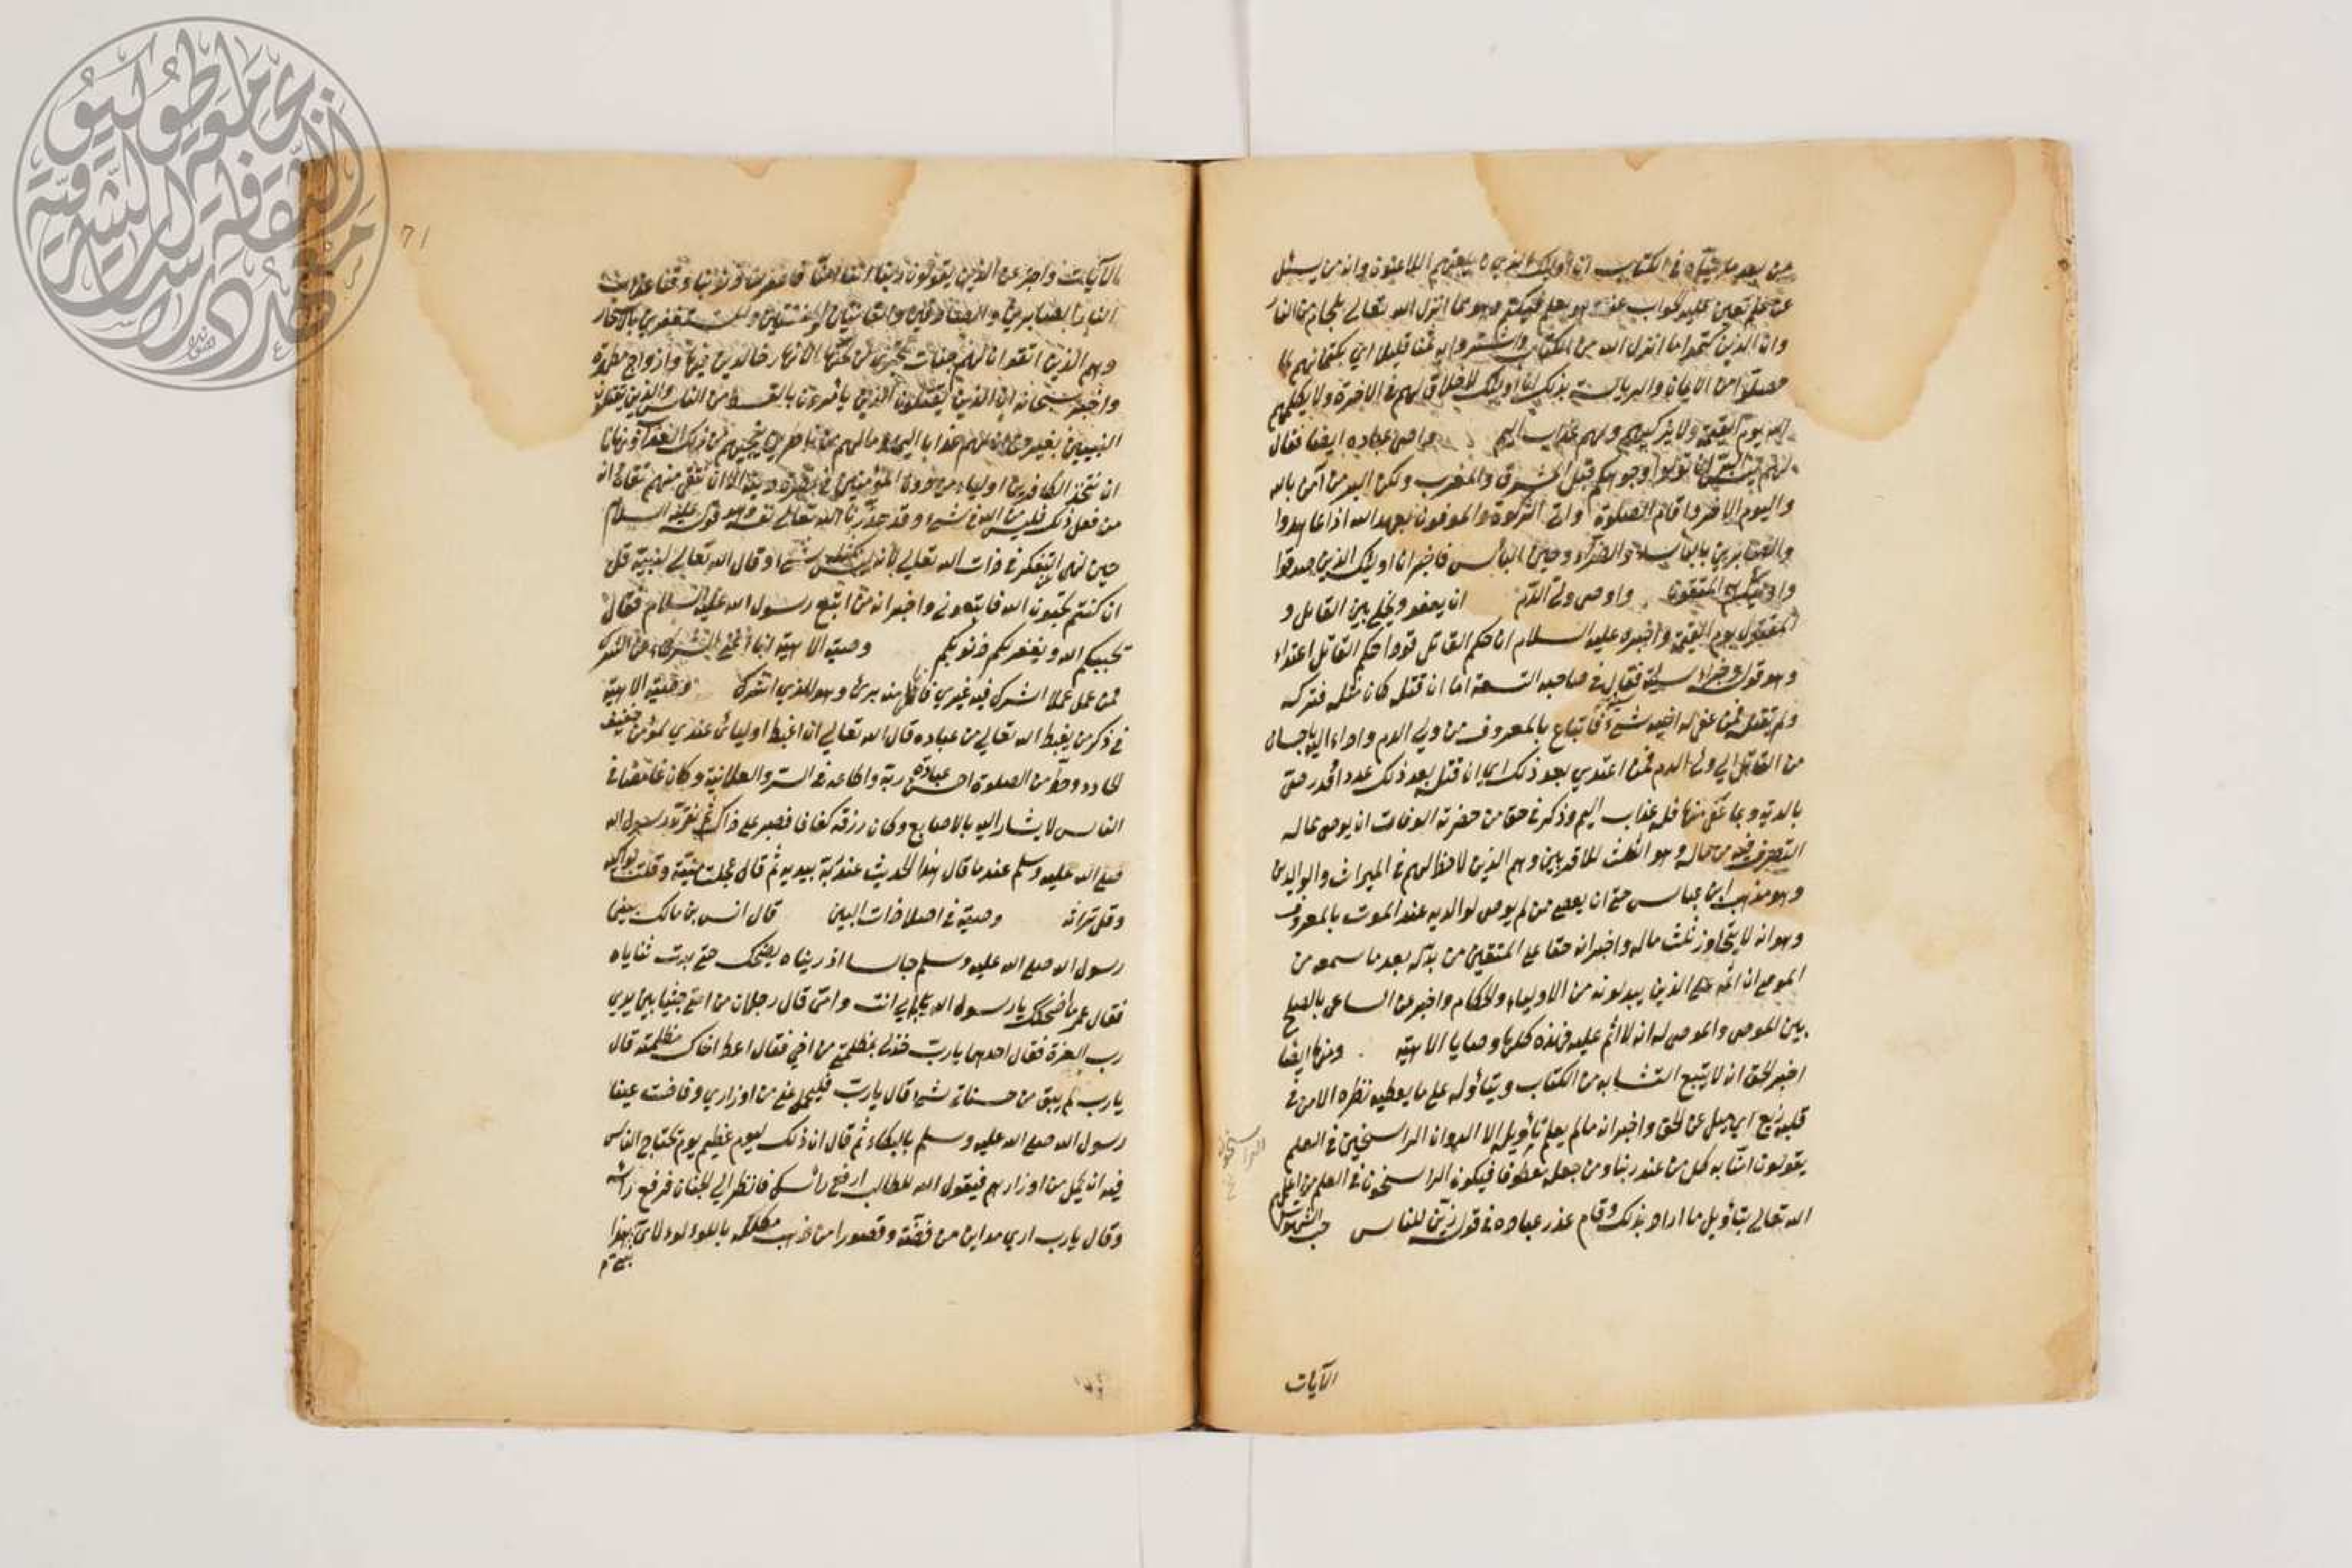 من بعد ما بيناه في الكتاب ان اوليك الذين يلعنهم اللاعنون وانه من يسئل
عن علم تعين عليه الجواب عنه وهو يعلم فيكتم وهو مما انزل الله تعالى بلجام من النار
وان الذين كتموا ما انزل الله من الكتاب واشتروا به ثمنا قليلا اي بكتمانهم لما
حصلوا من والرياسة بذلك ان اوليك لا خلاق لهم في الاخرة ولا يكلمهم
الله يوم القيمة ولا يزكيهم ولهم عذاب اليم واوصى عباده ايضا فقال
لهم ليس البر ان تولوا وجوهكم قبل المشرق والمغرب ولكن البر من آمن بالله
واليوم الاخر واقام الصلوة واتى الزكوة والموفون بعهد الله اذا عاهدوا
والصابرين بالباساء والضراء وحين البأس فاخبر ان اوليك الذين صدقوا
واوليك هم المتقون واوصى ولي الدم ان يعفو ويخلي بين القاتل و
المقتول يوم القيمة واخبره عليه السلام ان حكم القاتل قودا حكم القاتل اعتداء
وهو قوله وجزاء سيئة فقال في صاحب التسعة اما ان قتله كان مثله فتركه
ولم يقتله فمن عفي له من اخيه شيء فاتباع بالمعروف من ولي الدم واداء اليه باحسان
من القاتل الى ولي الدم فمن اعتدى بعد ذلك اي ان قتل بعد ذلك رضي
بالدية وبما عفى منها فله عذاب اليم وذكر في حق من حضرته الوفات ان يوصي بماله
التصرف فيه من ماله وهو الثلث للاقربين وهم الذين لا حظ لهم في الميراث والوالدين
وهو مذهب ابن عباس حتى ان يعصي من لم يوص لوالديه عند الموت بالمعروف
وهو انه لا يتجاوز ثلث ماله واخبر انه حقا على المتقين من بدله بعد ما سمعه من
الموصي ان اثمه على الذين يبدلونه من الاولياء والحكام واخبر عن الساعي بالصلح
بين الموصي والموصى له انه لا اثم عليه فهذه كلها وصايا الاهية . ومنها ايضا
اخبر الحق ان لا يتبع المتشابه من الكتاب ويتأوله على ما يعطيه نظره الا من في
قلبه زيغ اي ميل عن الحق واخبر انه ما لم يعلم تأويله الا الله وان الراسخين في العلم
يقولون آمنا به كل من عند ربنا ومن جعله معطوفا فيكون الراسخون في العلم من اعلمهم
الله تعالى بتأويل ما اراد بذلك وقام عذر عباده في قوله زين للناس حب الشهوات
الراسخون
الآيات
71
الآيات واخبر عن الذين يقولون ربنا اننا آمنا فاغفر لنا ذنوبنا وقنا عذاب
النار الصابرين والصادقين والقانتين والمنفقين والمستغفرين بالاسحار
وهم الذين اتقوا ان لهم جنات تجري من تحتها الانهار خالدين فيها وازواج مطهرة
واخبر سبحانه ان الذين يقتلون الذين يأمرون بالقسط من الناس والذين يقتلون
النبيين بغير حق ان لهم عذابا اليما وما لهم من ناصرين ينجيهم من ذلك العذاب ونهانا
ان نتخذ الكافرين اولياء من دون المؤمنين الا ان نتقي منهم تقاة ان
من فعل ذلك فليس من الله في شيء وقد حذرنا الله تعالى نفسه وهو قوله عليه السلام
حين نهى عن التفكر في ذات الله تعالى لانه ليس كمثله شيء وقال الله تعالى لنبيه قل
ان كنتم تحبون الله فاتبعوني واخبر انه من اتبع رسول الله عليه السلام فقال
يحببكم الله ويغفر لكم ذنوبكم وصية الاهية انا اغنى الشركاء عن الشرك
فمن عمل عملا اشرك فيه غيري فانا منه بريء وهو للذي اشرك وصية الاهية
في ذكر من يغبط الله تعالى من عباده قال الله تعالى ان اغبط اوليائي عندي لمؤمن خفيف
الحاذ ذو حظ من الصلوة احسن عبادة ربه واطاعه في السر والعلانية وكان غامضا في
الناس لا يشار اليه بالاصابع وكان رزقه كفافا فصبر على ذاك ثم نقر رسول الله
صلى الله عليه وسلم عندما قال هذا الحديث عن ربه بيديه ثم قال عجلت منيته وقلت بواكيه
وقل تراثه وصية في اصلاح ذات البين قال انس بن مالك بينما
رسول الله صلى الله عليه وسلم جالسا اذ رايناه يضحك حتى بدت ثناياه
فقال عمر ما اضحكك يا رسول الله بابي انت وامي قال رجلان من امتي جثيا بين يدي
رب العزة فقال احدهما يا رب خذ لي مظلمتي من اخي فقال اعط اخاك مظلمته قال
يا رب لم يبق من حسناتي شيء قال يا رب فليحمل عني من اوزاري وفاضت عينا
رسول الله صلى الله عليه وسلم بالبكاء ثم قال ان ذلك ليوم عظيم يوم يحتاج الناس
فيه ان يحمل من اوزارهم فيقول الله للطالب ارفع رأسك فانظر الى الجنان فرفع رأسه
وقال يا رب ارى مداين من فضة وقصورا من ذهب مكللة باللؤلؤ لاي نبي هذا